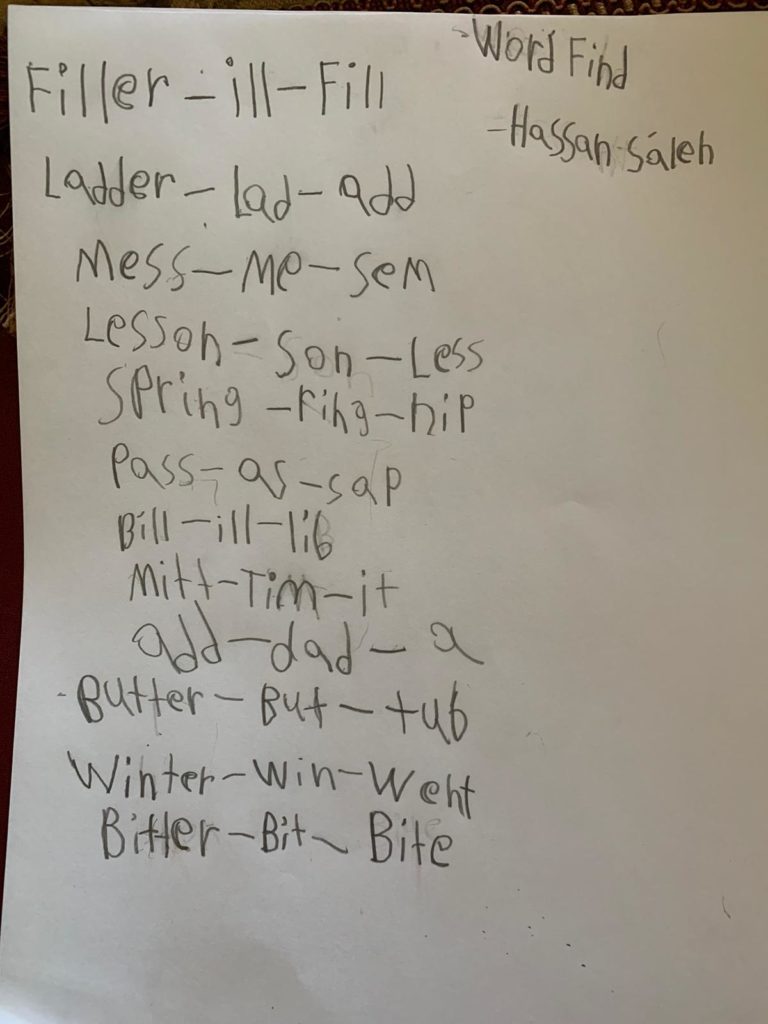 -Word Find
-Hassan Saleh
Filler-ill-Fill
Ladder-Lad-add
Mess-Me-Sem
Lesson-Son-Less
Spring-ring-nip
Pass-as-sap
Bill-ill-lib
Mitt-Tim-it
add-dad-a
-Butter-But-tub
Winter-Win-Went
Bitter-Bit-Bite